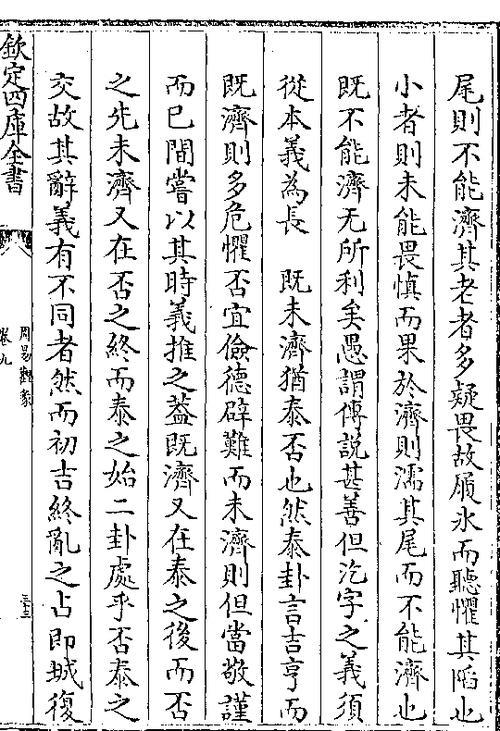 尾則不能濟其老者多疑畏故履氷而聽懼其陷也
小者則未能畏慎而果於濟則濡其尾而不能濟也
既不能濟无所利矣愚謂傳說甚善但汔字之義須
從本義為長　既未濟猶泰否也然泰卦言吉亨而
既濟則多危懼否宜儉德辟難而未濟則但當敬謹
而已間嘗以其時義推之葢既濟又在泰之後而否
之先未濟又在否之終而泰之始二卦處乎否泰之
交故其辭義有不同者然而初吉終亂之占即城復
欽定四庫全書
周易觀彖
卷九
三十三